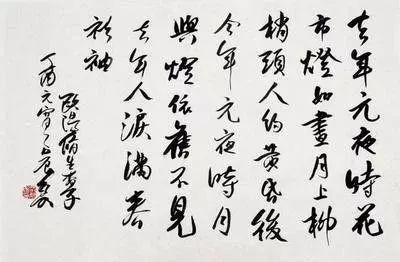 去年元夜時花
市燈如晝月上柳
梢頭人約黄昏後
今年元夜時月
與燈依舊不見
去年人淚滿春
衫袖
歐陽脩生查子
丁酉元宵